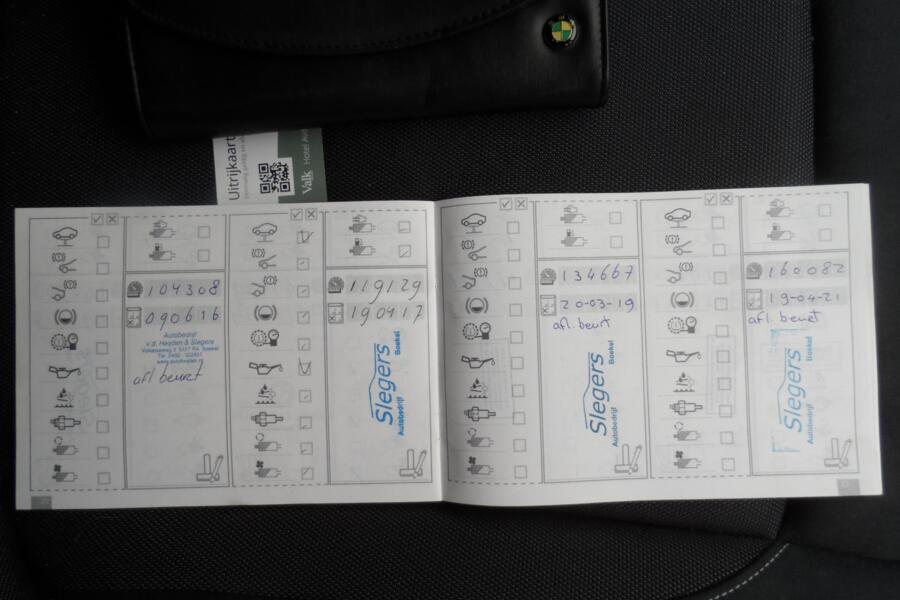 Uitrijkaart
Valk Hotel
104308
090616
Autobedrijf
v.d. Heyden & Slegers
afl beurt
119129
190417
Slegers
Autobedrijf Boekel
134667
20-03-19
afl. beurt
Slegers
Autobedrijf Boekel
160082
19-04-21
afl. beurt
Slegers
Autobedrijf Boekel